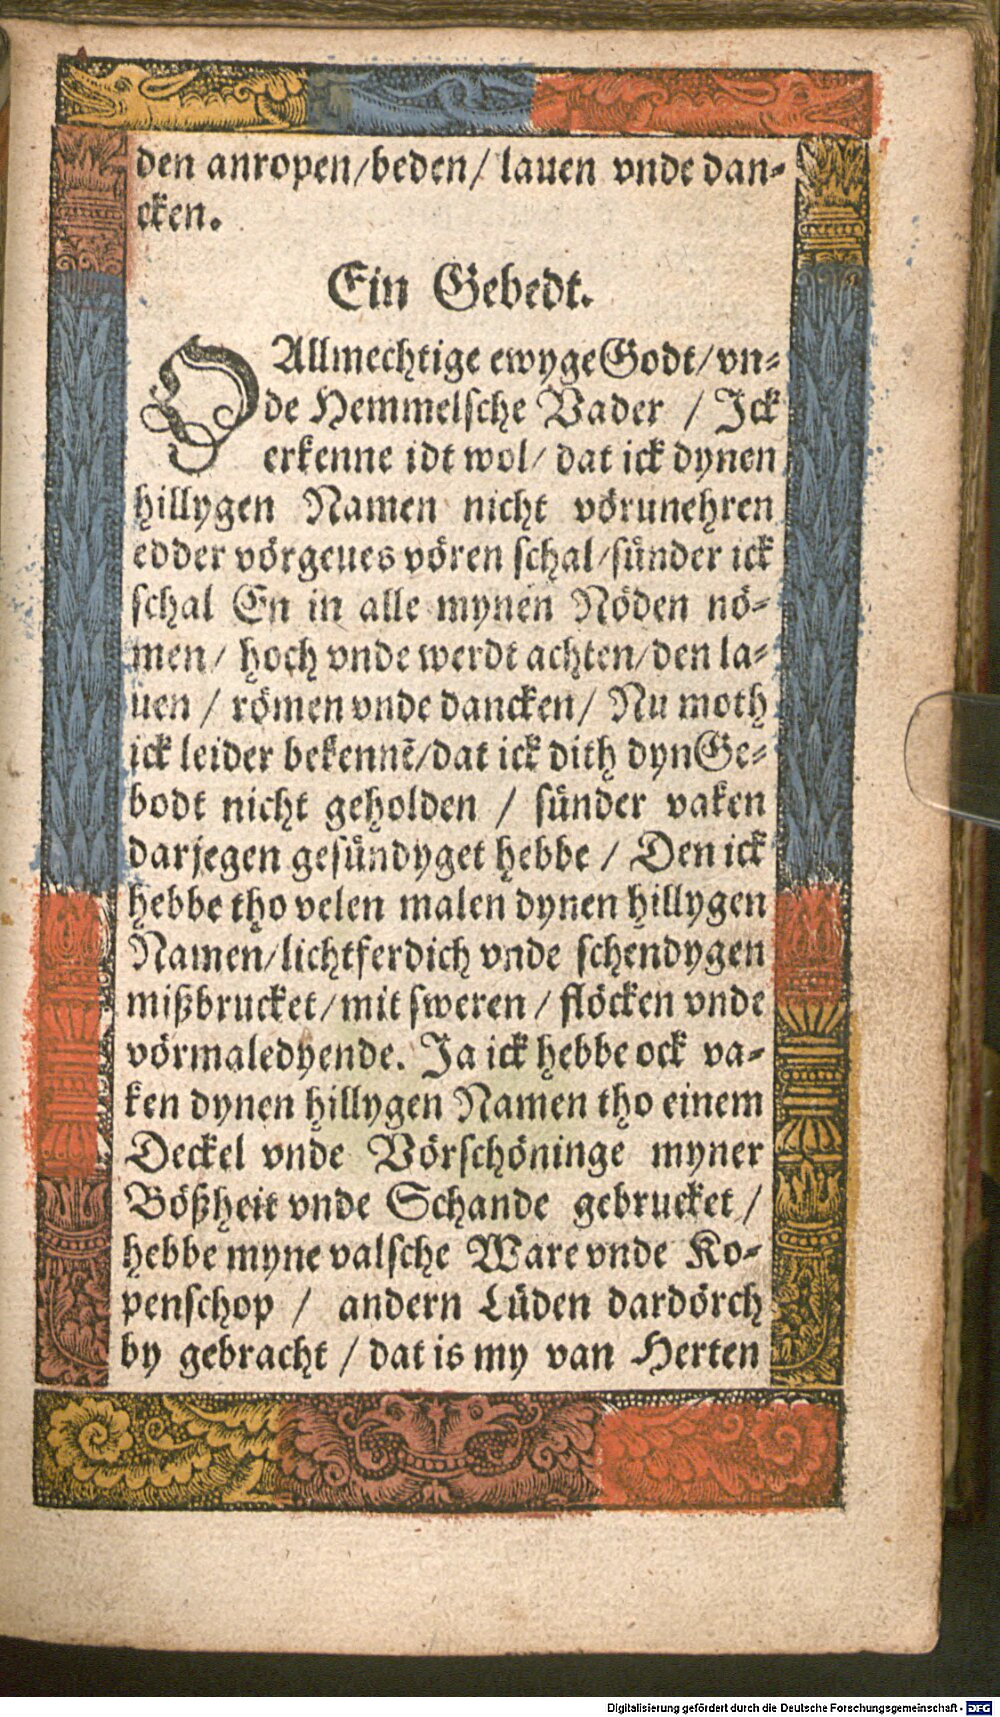 den anropen/beden/ lauen vnde dan⸗
cken.
Ein Gebedt.
O Allmechtige ewyge Godt/vn⸗
de Hemmelſche Vader / Jck
erkenne idt wol/ dat ick dynen
hillygen Namen nicht vörunehren
edder vörgeues vören ſchal/ſünder ick
ſchal En in alle mynen Nöden nö⸗
men/ hoch vnde werdt achten/den la⸗
uen / römen vnde dancken/ Nu moth
ick leider bekennē/dat ick dith dyn Ge⸗
bodt nicht geholden / ſünder vaken
darjegen geſündyget hebbe / Den ick
hebbe tho velen malen dynen hillygen
Namen/lichtferdich vnde ſchendygen
mißbrucket/mit ſweren / flöcken vnde
vörmaledyende. Ja ick hebbe ock va⸗
ken dynen hillygen Namen tho einem
Deckel vnde Vörſchöninge myner
Bößheit vnde Schande gebrucket /
hebbe myne valſche Ware vnde Ko⸗
penſchop / andern Lüden dardörch
by gebracht / dat is my van Herten
Digitalisierung gefördert durch die Deutsche Forschungsgemeinschaft - DFG